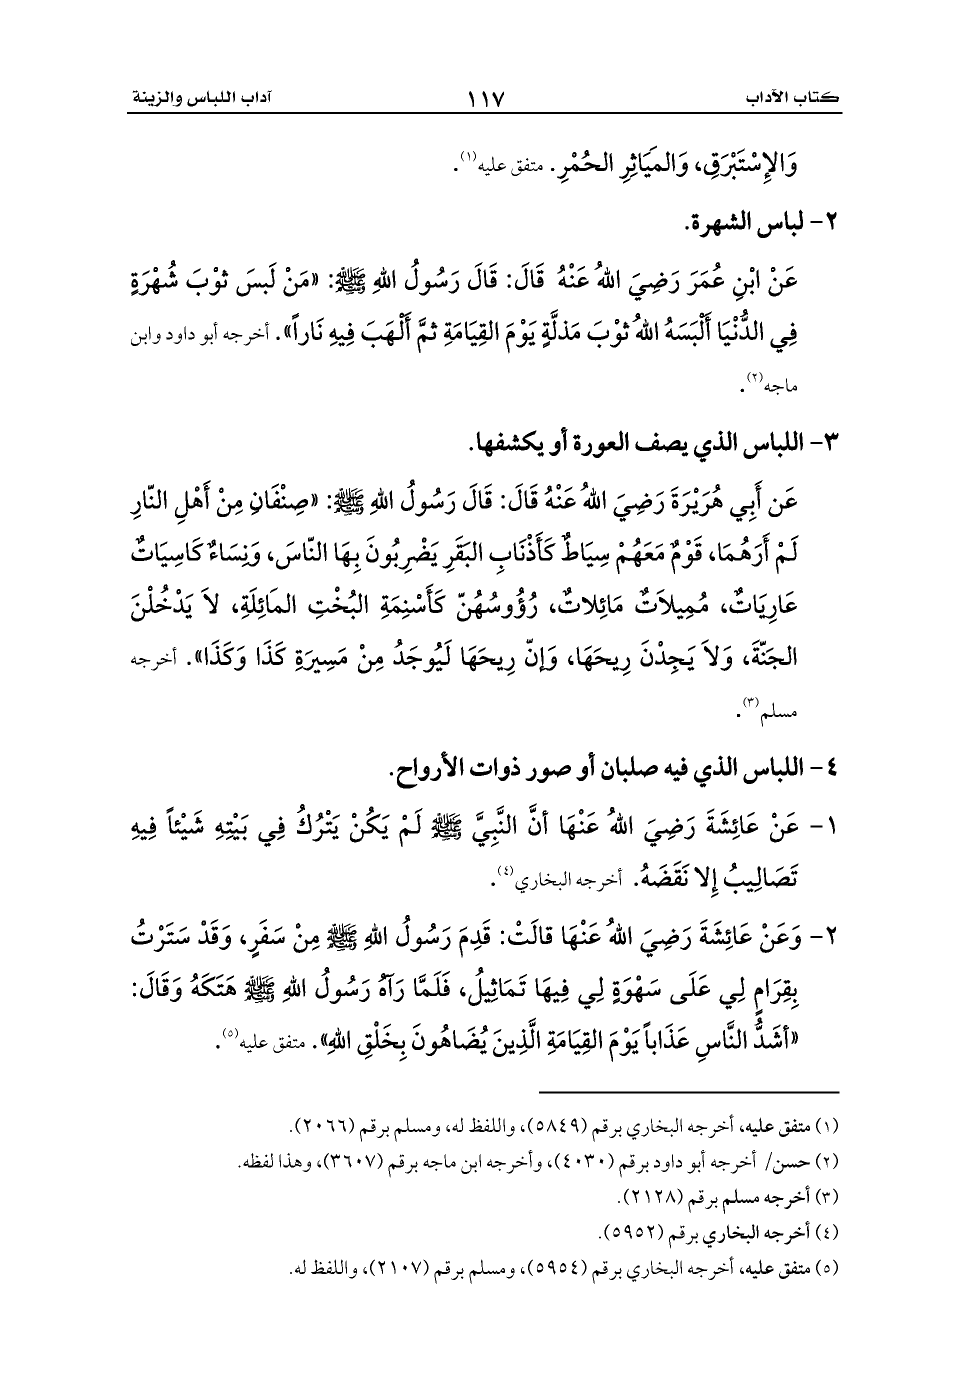 كتاب الآداب ١١٧ آداب اللباس والزينة
وَالإِسْتَبْرَقِ، وَالمَيَاثِرِ الحُمْرِ. متفق عليه(١).
٢- لباس الشهرة.
عَنْ ابْنِ عُمَرَ رَضِيَ اللهُ عَنْهُ قَالَ: قَالَ رَسُولُ اللهِ ﷺ: «مَنْ لَبسَ ثوْبَ شُهْرَةٍ
فِي الدُّنْيَا أَلْبَسَهُ اللهُ ثوْبَ مَذلَّةٍ يَوْمَ القِيَامَةِ ثمَّ أَلْهَبَ فِيهِ نَاراً». أخرجه أبو داود وابن
ماجه(٢).
٣- اللباس الذي يصف العورة أو يكشفها.
عَن أَبِي هُرَيْرَةَ رَضِيَ اللهُ عَنْهُ قَالَ: قَالَ رَسُولُ اللهِ ﷺ: «صِنْفَانِ مِنْ أَهْلِ النّارِ
لَمْ أَرَهُمَا، قَوْمٌ مَعَهُمْ سِيَاطٌ كَأَذْنَابِ البَقَرِ يَضْرِبُونَ بِهَا النّاسَ، وَنِسَاءٌ كَاسِيَاتٌ
عَارِيَاتٌ، مُمِيلاَتٌ مَائِلاتٌ، رُؤُوسُهُنّ كَأَسْنِمَةِ البُخْتِ المَائِلَةِ، لاَ يَدْخُلْنَ
الجَنّةَ، وَلاَ يَجِدْنَ رِيحَهَا، وَإنّ رِيحَهَا لَيُوجَدُ مِنْ مَسِيرَةِ كَذَا وَكَذَا». أخرجه
مسلم(٣).
٤- اللباس الذي فيه صلبان أو صور ذوات الأرواح.
١- عَنْ عَائِشَةَ رَضِيَ اللهُ عَنْهَا أنَّ النَّبِيَّ ﷺ لَمْ يَكُنْ يَتْرُكُ فِي بَيْتِهِ شَيْئاً فِيهِ
تَصَالِيبُ إِلا نَقَضَهُ. أخرجه البخاري(٤).
٢- وَعَنْ عَائِشَةَ رَضِيَ اللهُ عَنْهَا قالَتْ: قَدِمَ رَسُولُ اللهِ ﷺ مِنْ سَفَرٍ، وَقَدْ سَتَرْتُ
بِقِرَامٍ لِي عَلَى سَهْوَةٍ لِي فِيهَا تَمَاثِيلُ، فَلَمَّا رَآهُ رَسُولُ اللهِ ﷺ هَتَكَهُ وَقَالَ:
«أشَدُّ النَّاسِ عَذَاباً يَوْمَ القِيَامَةِ الَّذِينَ يُضَاهُونَ بِخَلْقِ اللهِ». متفق عليه(٥).
(١) متفق عليه، أخرجه البخاري برقم (٥٨٤٩)، واللفظ له، ومسلم برقم (٢٠٦٦).
(٢) حسن/ أخرجه أبو داود برقم (٤٠٣٠)، وأخرجه ابن ماجه برقم (٣٦٠٧)، وهذا لفظه.
(٣) أخرجه مسلم برقم (٢١٢٨).
(٤) أخرجه البخاري برقم (٥٩٥٢).
(٥) متفق عليه، أخرجه البخاري برقم (٥٩٥٤)، ومسلم برقم (٢١٠٧)، واللفظ له.